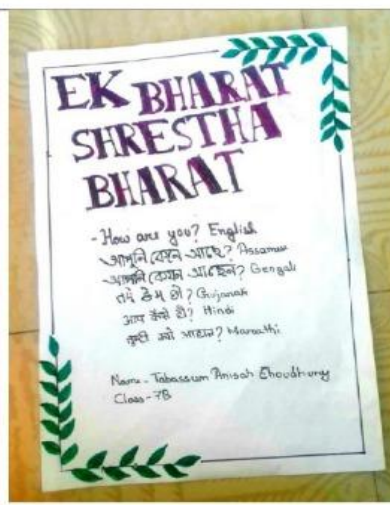 EK BHARAT
SHRESTHA
BHARAT
- How are you? English
আপুনি কেনে আছে? Assamese
আপনি কেমন আছেন? Bengali
તમે કેમ છો? Gujarati
आप कैसे हो? Hindi
तुम्ही कसे आहात? Marathi
Name - Tabassum Anisah Choudhury
Class - 7B